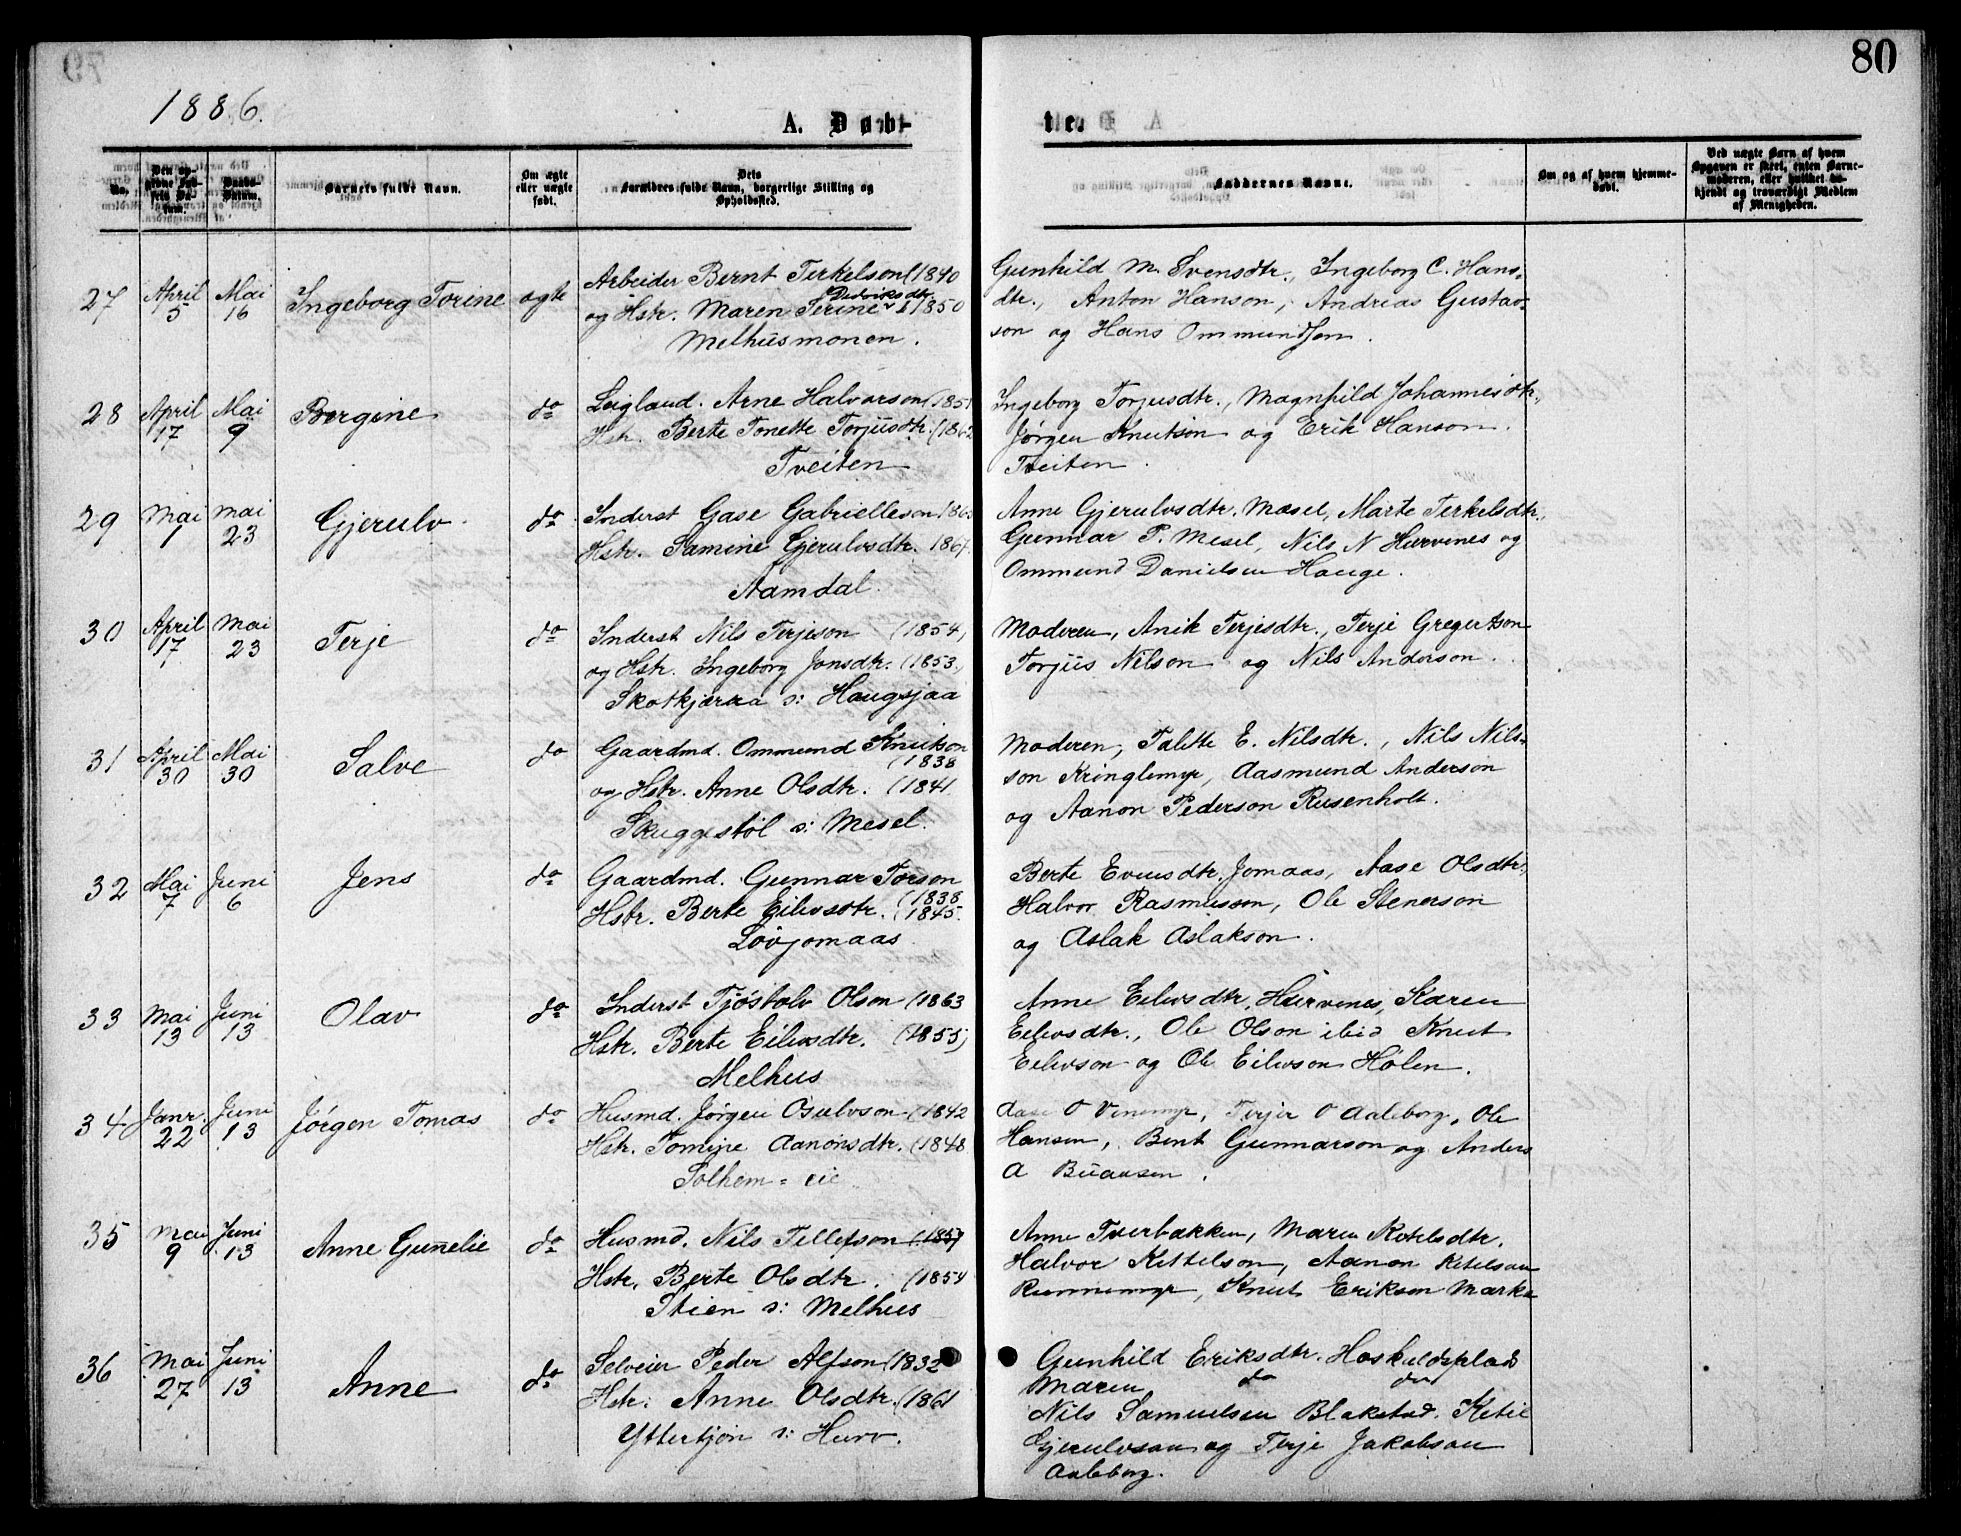 80
1886.
A. Døbte.
No.
Barnets fulde Navn.
Om ægte eller uægte født.
Dets Forældres fulde Navn, borgerlige Stilling og Opholdssted.
Faddernes Navne.
Om og af hvem hjemmedøbt.
Ved uægte Barn af hvem Opgaven er skeet, enten Barnemoderen, eller hvilket bekjendt og troværdigt Medlem af Menigheden.
27 April 5 Mai 16 Ingeborg Torine ægte
Arbeider Bernt Terkelson (1840
Didriksdtr
og Hstr. Maren Terine 1850
Melhusmonen.
Gunhild M. Svensdtr., Ingeborg C. Hans-
dtr., Anton Hanson, Andreas Gustav-
son og Hans Ommundsen.
28 April 17 Mai 9 Bergine do
Leiglænd. Arne Halvorson (1851
Hstr. Berte Tonette Torjusdtr. (1862
Tveiten
Ingeborg Torjusdtr., Magnhild Johannesdtr.,
Jørgen Knutson og Erik Hanson.
Tveiten.
29 Mai 1 Mai 23 Gjerulv do
Inderst Gase Gabrielleson
Hstr. Samine Gjerulvsdtr. 1867.
Aamdal.
Anne Gjerulvsdtr. Mæsel, Marte Terkelsdtr.,
Gunnar P. Mesel, Nils N Hurvenes og
Ommund Danielsen Hauge.
30 April 17 Mai 23 Terje do
Inderst Nils Terjeson (1854)
og Hstr. Ingeborg Jonsdtr. (1853.)
Skotkjærraa s: Haugsjaa
Moderen, Anik Terjesdtr., Terje Gregertson
Torjus Nilson og Nils Anderson.
31 April 30 Mai 30 Salve do
Gaardmd. Ommund Knutson
(1838
og Hstr. Anne Olsdtr. (1841
Skuggestøl s: Mesel.
Moderen, Talette E. Nilsdtr., Nils Nils-
son Kringlemyr, Aasmund Anderson
og Aanon Pederson Rusenholt.
32 Mai 7 Juni 6 Jens do
Gaardmd. Gunnar Torson
(1838
Hstr. Berte Eilevsdtr. (1845.
Løvjomaas.
Berte Evensdtr. Jomaas, Aase Olsdtr.,
Halvor Rasmusson, Ole Stenerson
og Aslak Aslakson.
33 Mai 13 Juni 13 Olav do
Inderst Tjøstolv Olson (1863
Hstr. Berte Eilevsdtr. (1855)
Melhus
Anne Eilevsdtr. Hurvenes, Karen
Eilevsdtr., Ole Olson ibid Knut
Eilevson og Ole Eilevson Hølen.
34 Janr. 22 Juni 13 Jørgen Tomas do
Husmd. Jørgen Osulvson (1842
Hstr. Tomine Aanonsdtr. (1848
Solhem-eie
Aase O Venemyr, Terjer O Aaleborg, Ole
Hansen, Bent Gunnarson og Anders
A Buaasen.
35 Mai 9 Juni 13 Anne Gunelie do
Husmd. Nils Tellefson (1857
Hstr. Berte Olsdtr. (1854
Stien s: Melhus
Anne Tverbakken, Maren Ketelsdtr.
Halvor Kettelson, Aanon Ketelsen
Rennemyr, Knut Erikson Marka
36 Mai 27 Juni 13 Anne do
Selveier Peder Alfson (1832
Hstr. Anne Olsdtr. (1861
Yttertjøn s: Hurv.
Gunhild Eriksdtr. Høskuldsplads
Maren do do
Nils Samuelsen Blakstad. Ketil
Gjerulvsen og Terje Jakobsen
Aaleborg.